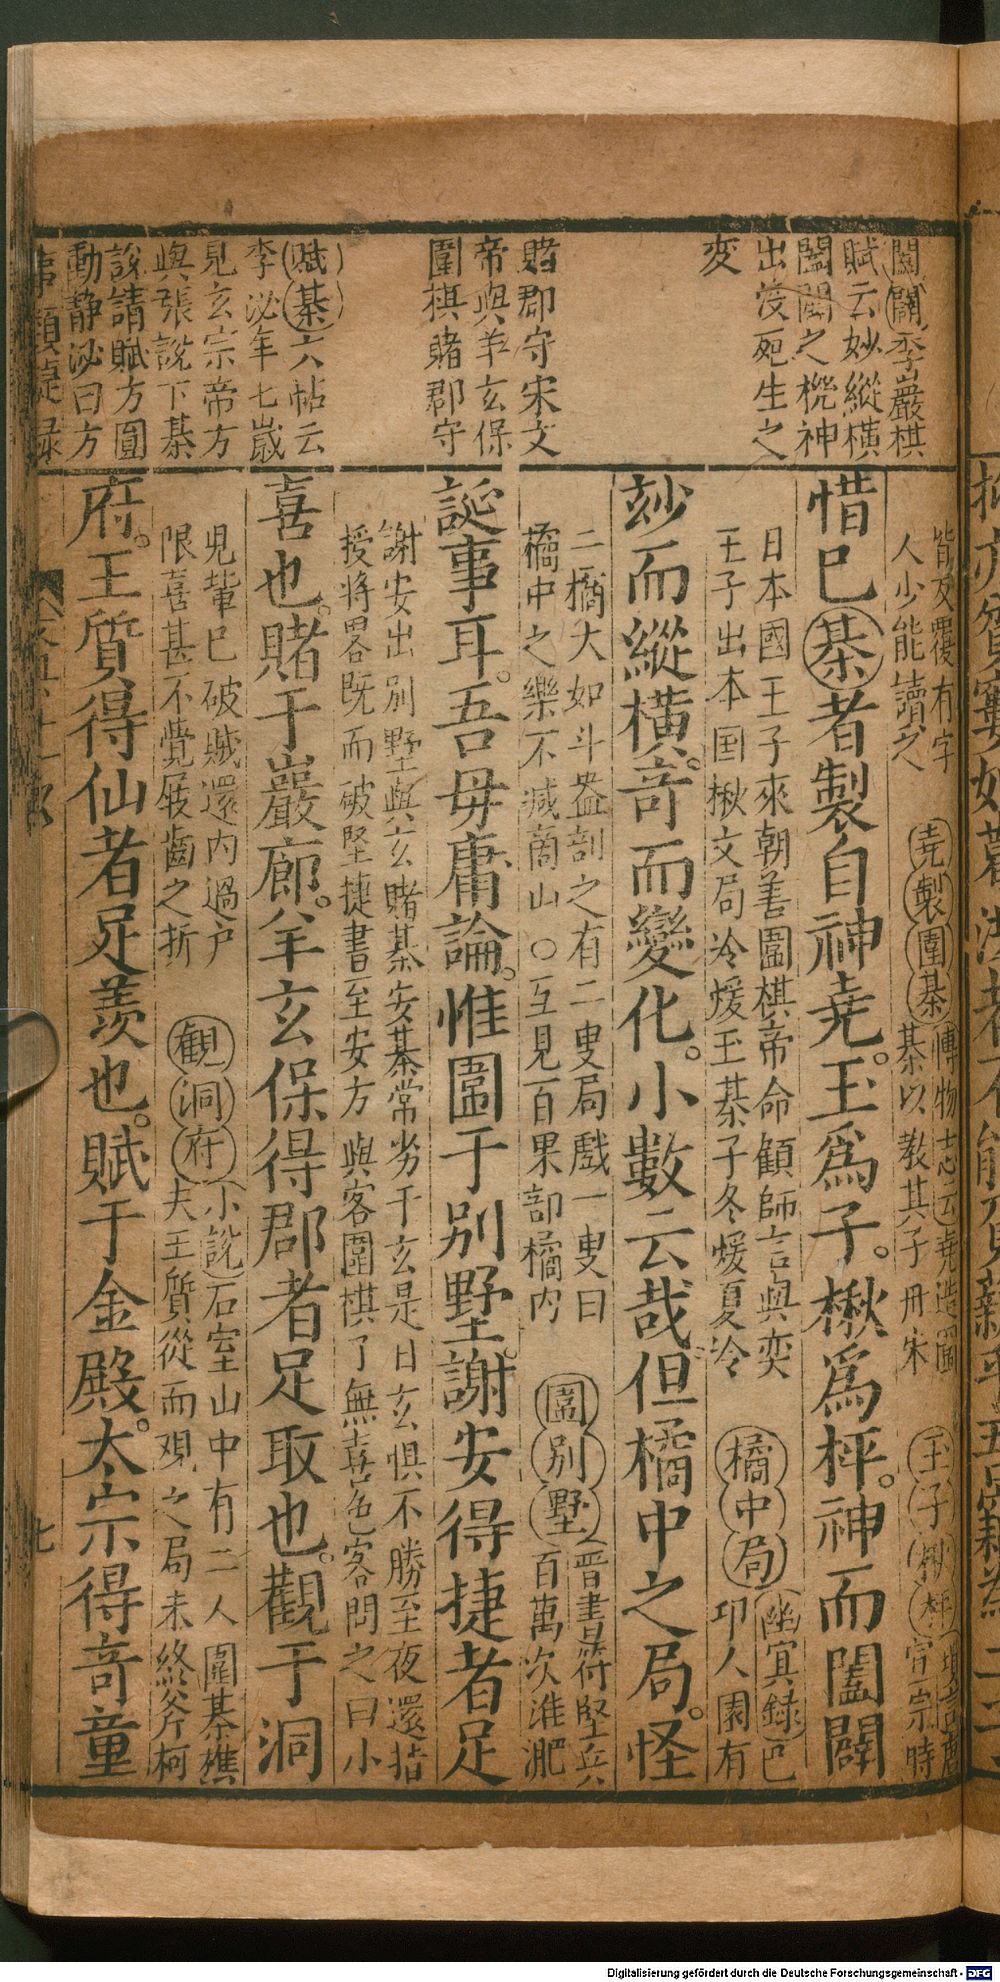 闔闢李巖棋
賦云妙縱橫
闔闢之機神
出没死生之
変
賭郡守宋文
帝與羊玄保
圍棋賭郡守
賦棊六帖云
李泌年七歳
見玄宗帝方
與張說下棊
說請賦方圓
動静泌曰方
皆反覆有字
人少能讀之
堯製圍棊
博物志云堯造圍
棊以教其子丹朱
玉子楸枰
宣宗時
惜巳棊者製自神堯。玉爲子。楸爲枰。神而闔闢
日本國王子來朝善圍棋帝命顧師言與奕
王子出本国楸文局冷煖玉棊子冬煖夏冷
橘中局
幽冥録巴
卭人園有
妙而縱橫。竒而變化。小數云哉。但橘中之局。怪
二橘大如斗盎剖之有二叟局戲一叟曰
橘中之樂不减商山○互見百果部橘内
圍別墅
晋書符堅兵
百萬次淮淝
誕事耳。吾毋庸論。惟圍于別墅。謝安得捷者足
謝安出別墅與玄賭棊安棊常劣于玄是日玄惧不勝至夜還指
授将畧既而破堅捷書至安方與客圍棋了無喜色客問之曰小
喜也。賭于巖廊。羊玄保得郡者足取也。觀于洞
児輩巳破賊還内過户
限喜甚不覺屐齒之折
観洞府
小說石室山中有二人圍棊樵
夫王質從而观之局未終斧柯
府。王質得仙者足羡也。賦于金殿。太宗得竒童
七
Digitalisierung gefördert durch die Deutsche Forschungsgemeinschaft - DFG